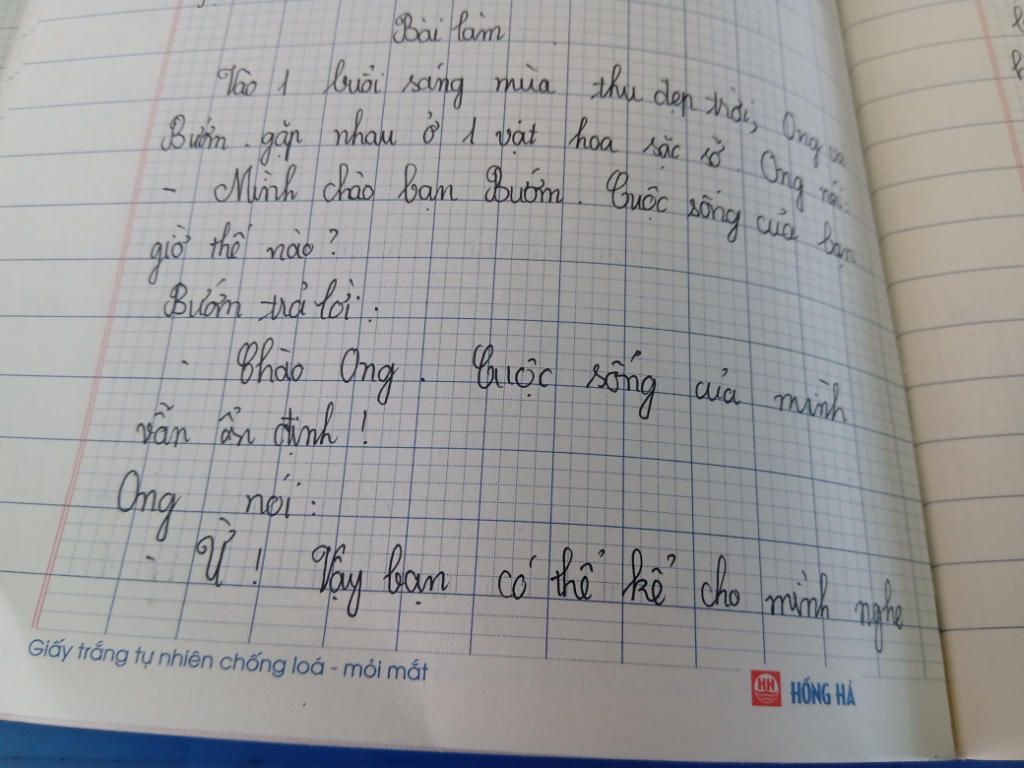 Bài làm
Vào 1 buổi sáng mùa thu đẹp trời, Ong và
Bướm gặp nhau ở 1 vạt hoa sặc sỡ. Ong nói:
- Mình chào bạn Bướm. Cuộc sống của bạn
giờ thế nào?
Bướm trả lời:
- Chào Ong. Cuộc sống của mình
vẫn ổn định!
Ong nói:
- Ừ! Vậy bạn có thể kể cho mình nghe
Giấy trắng tự nhiên chống loá - mỏi mắt
HH HỒNG HÀ